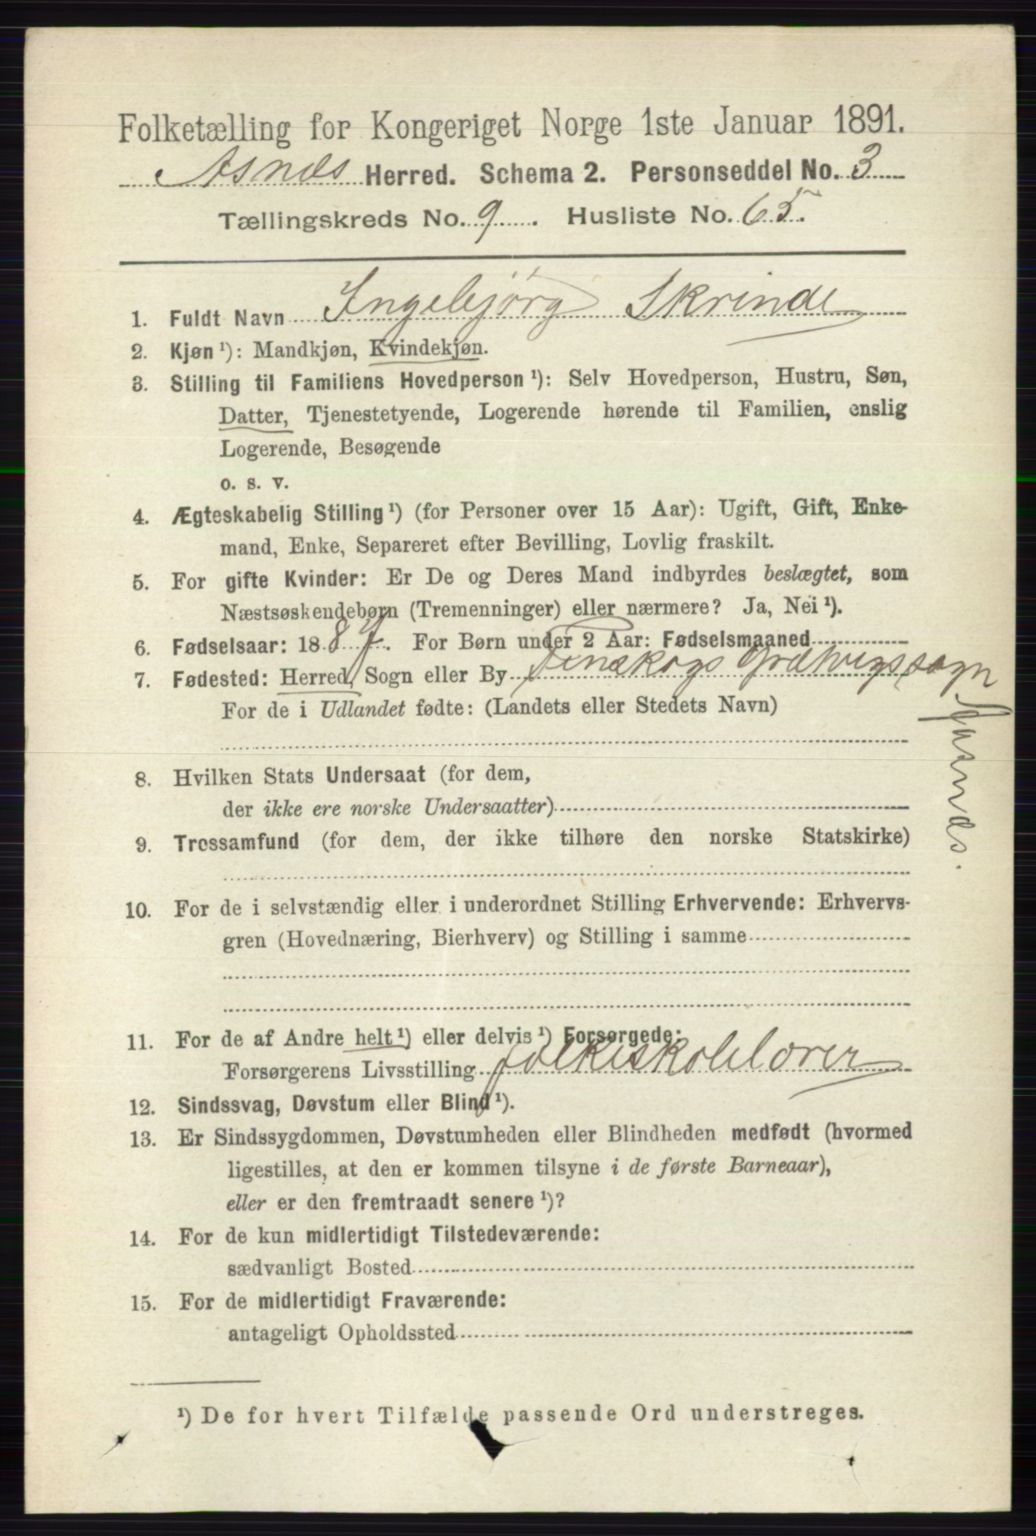 Folketælling for Kongeriget Norge 1ste Januar 1891.
Asnæs Herred. Schema 2. Personseddel No. 3
Tællingskreds No. 9. Husliste No. 65.
1. Fuldt Navn Ingebjørg Skrinde
2. Kjøn ¹): Mandkjøn, Kvindekjøn.
3. Stilling til Familiens Hovedperson ¹): Selv Hovedperson, Hustru, Søn,
Datter, Tjenestetyende, Logerende hørende til Familien, enslig
Logerende, Besøgende
o. s. v.
4. Ægteskabelig Stilling ¹) (for Personer over 15 Aar): Ugift, Gift, Enke-
mand, Enke, Separeret efter Bevilling, Lovlig fraskilt.
5. For gifte Kvinder: Er De og Deres Mand indbyrdes beslægtet, som
Næstsøskendebørn (Tremenninger) eller nærmere? Ja, Nei ¹).
6. Fødselsaar: 1887. For Børn under 2 Aar: Fødselsmaaned
7. Fødested: Herred, Sogn eller By Finskogs Gravbergssogn
Aasnæs.
For de i Udlandet fødte: (Landets eller Stedets Navn)
8. Hvilken Stats Undersaat (for dem,
der ikke ere norske Undersaatter)
9. Trossamfund (for dem, der ikke tilhøre den norske Statskirke)
10. For de i selvstændig eller i underordnet Stilling Erhvervende: Erhvervs-
gren (Hovednæring, Bierhverv) og Stilling i samme
11. For de af Andre helt ¹) eller delvis ¹) Forsørgede:
Forsørgerens Livsstilling folkeskolelærer
12. Sindssvag, Døvstum eller Blind ¹).
13. Er Sindssygdommen, Døvstumheden eller Blindheden medfødt (hvormed
ligestilles, at den er kommen tilsyne i de første Barneaar),
eller er den fremtraadt senere ¹)?
14. For de kun midlertidigt Tilstedeværende:
sædvanligt Bosted
15. For de midlertidigt Fraværende:
antageligt Opholdssted
¹) De for hvert Tilfælde passende Ord understreges.